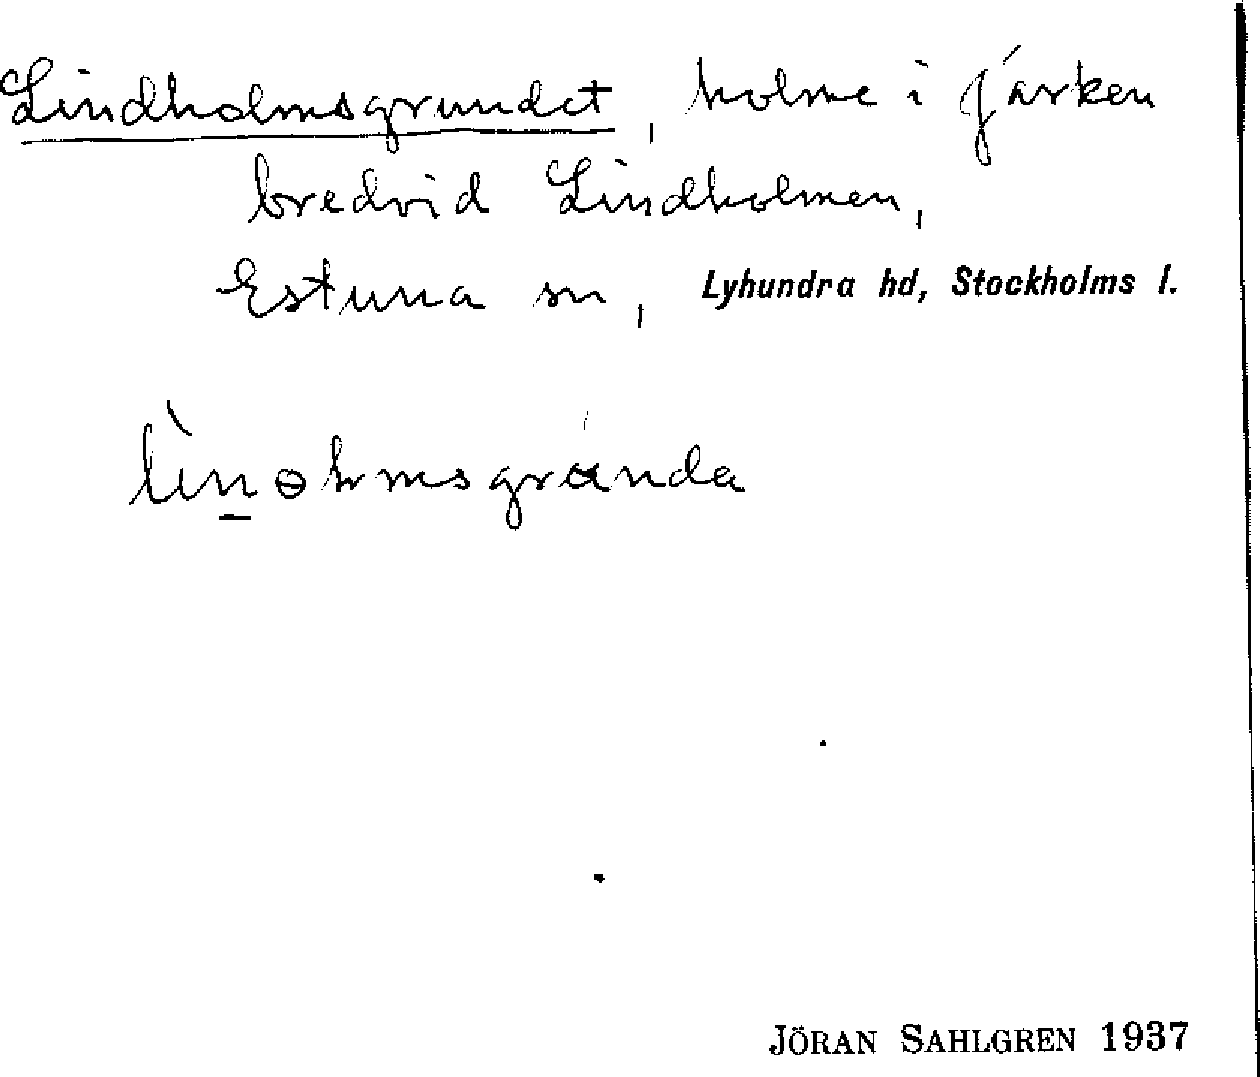 Lindholmsgrundet, holme i Järken
bredvid Lindholmen,
Estuna sn, Lyhundra hd, Stockholms l.
JÖRAN SAHLGREN 1937